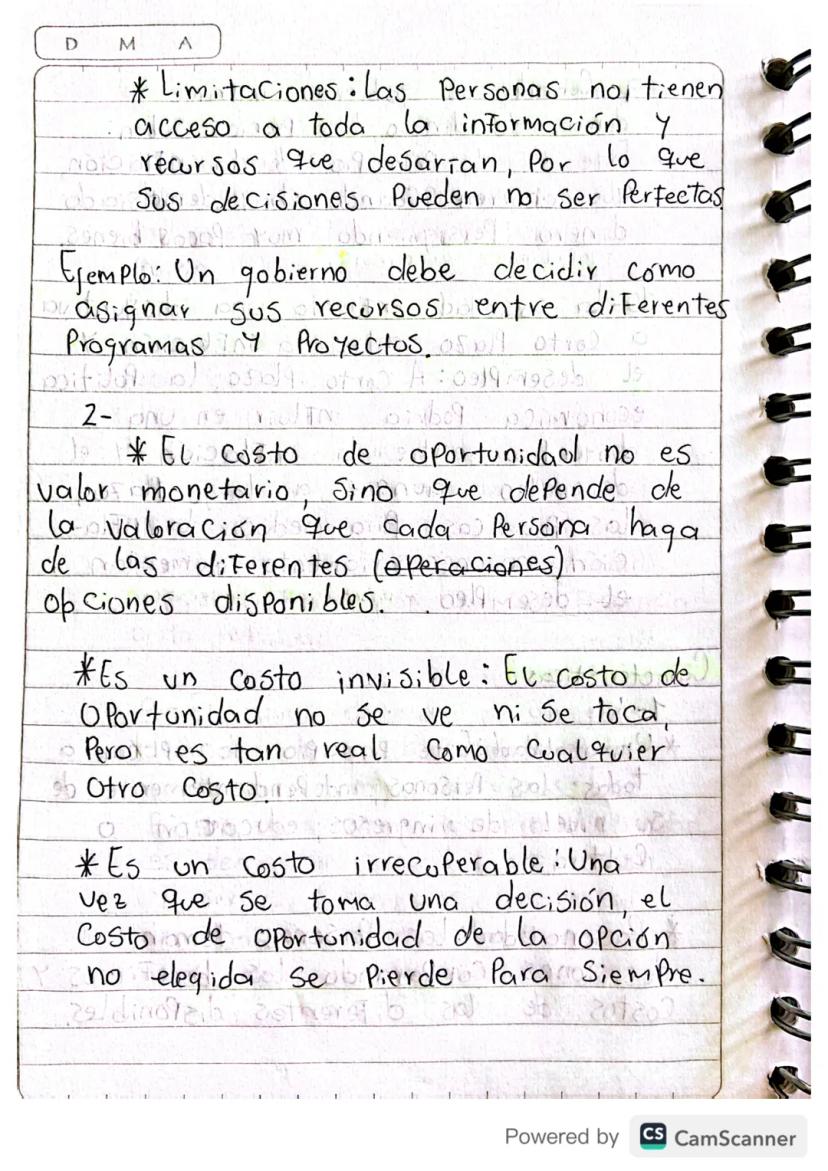 D M A
* Limitaciones: Las Personas no tienen
acceso a toda la información y
recursos que desarian, Por lo que
sus decisiones Pueden no ser Perfectas
Ejemplo: Un gobierno debe decidir como
asignar sus recursos entre diferentes
Programas y Proyectos.
2-
* El costo de oportunidad no es
valor monetario, sino que depende de
la valoración que cada Persona haga
de las diferentes (operaciones)
opciones disponibles.
* Es un costo invisible: El costo de
Oportunidad no se ve ni se toca,
Pero es tan real como cualquier
Otro Costo.
* Es un costo irrecuperable: Una
vez que se toma una decisión, el
Costo de oportunidad de la opción
no elegida se Pierde Para Siempre.
Powered by CS CamScanner